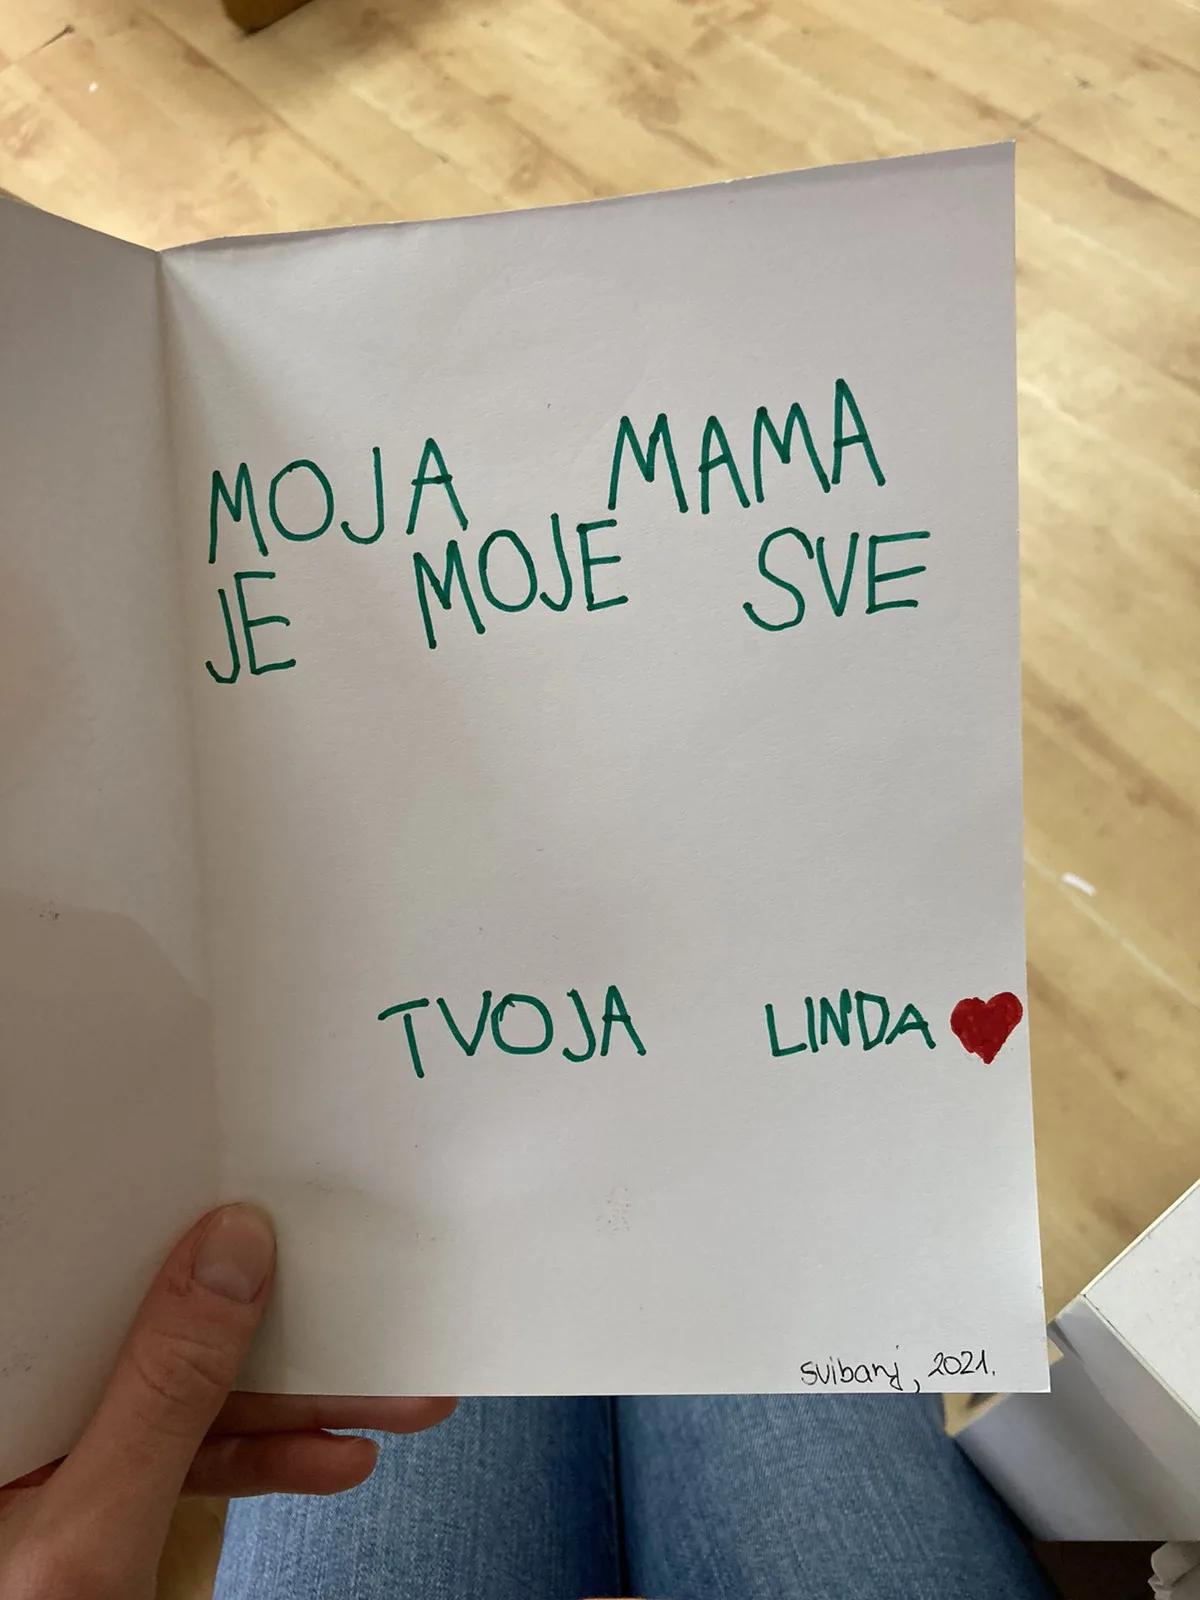 MOJA MAMA
JE MOJE SVE
TVOJA LINDA
svibanj, 2021.